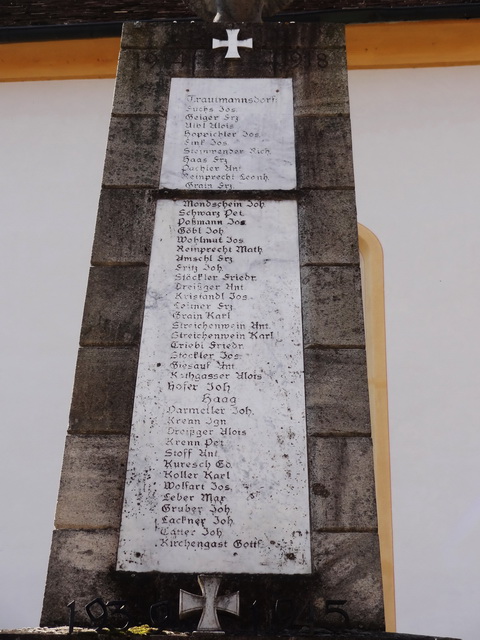 1914 1918
Trautmannsdorf
Fuchs Jos
Geiger Frz
Alois
Hoppichler Jos
Link Jos
Steinwender Rich
Haas Frz
Pachler Ant
Reinprecht Leonh
Grain Frz
Mondschein Joh
Schwarz Pet
Poßmann Jos
Göbl Joh
Wohlmut Jos
Reinprecht Math
Umschl Frz
Fritz Joh
Stöckler Friedr
Dreißger Ant
Kristandl Jos
Leitner Frz
Grain Karl
Streichenwein Ant
Streichenwein Karl
Triebl Friedr
Stöckler Jos
Giesauf Ant
Rathgasser Alois
Hofer Joh
Haag
Darmeller Joh
Krenn Ign
Dreißger Alois
Krenn Pet
Stoff Ant
Kuresch Ed
Koller Karl
Wolfart Jos
Leber Max
Gruber Joh
Lackner Joh
Joh
Kirchengast Gottf
1939 1945